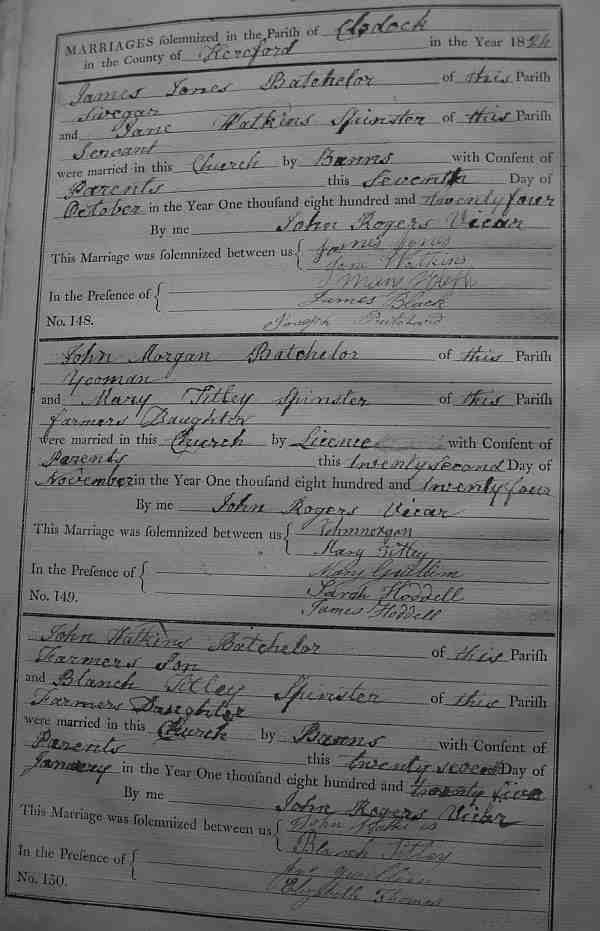 MARRIAGES ſolemnized in the Pariſh of Clodock
in the County of Hereford in the Year 1824
James Jones Batchelor of this Pariſh
and Jane Watkins Spinster of this Pariſh
Servant
were married in this Church by Banns with Conſent of
Parents this Seventh Day of
October in the Year One thouſand eight hundred and twenty four
By me John Rogers Vicar
This Marriage was ſolemnized between us { James Jones
Jane Watkins
In the Preſence of {
James Black
No. 148. Joseph Pritchard
John Morgan Batchelor of this Pariſh
Yeoman
and Mary Titley Spinster of this Pariſh
farmers Daughter
were married in this Church by Licence with Conſent of
Parents this twenty second Day of
November in the Year One thouſand eight hundred and twenty four
By me John Rogers Vicar
This Marriage was ſolemnized between us {
Mary Titley
In the Preſence of { Mary
Sarah Hoddell
No. 149. James Hoddell
John Watkins Batchelor of this Pariſh
Farmers Son
and Blanch Titley Spinster of this Pariſh
Farmers Daughter
were married in this Church by Banns with Conſent of
Parents this twenty seven Day of
January in the Year One thouſand eight hundred and twenty five
By me John Rogers Vicar
This Marriage was ſolemnized between us { John
Blanch Titley
In the Preſence of {
No. 150. Thomas